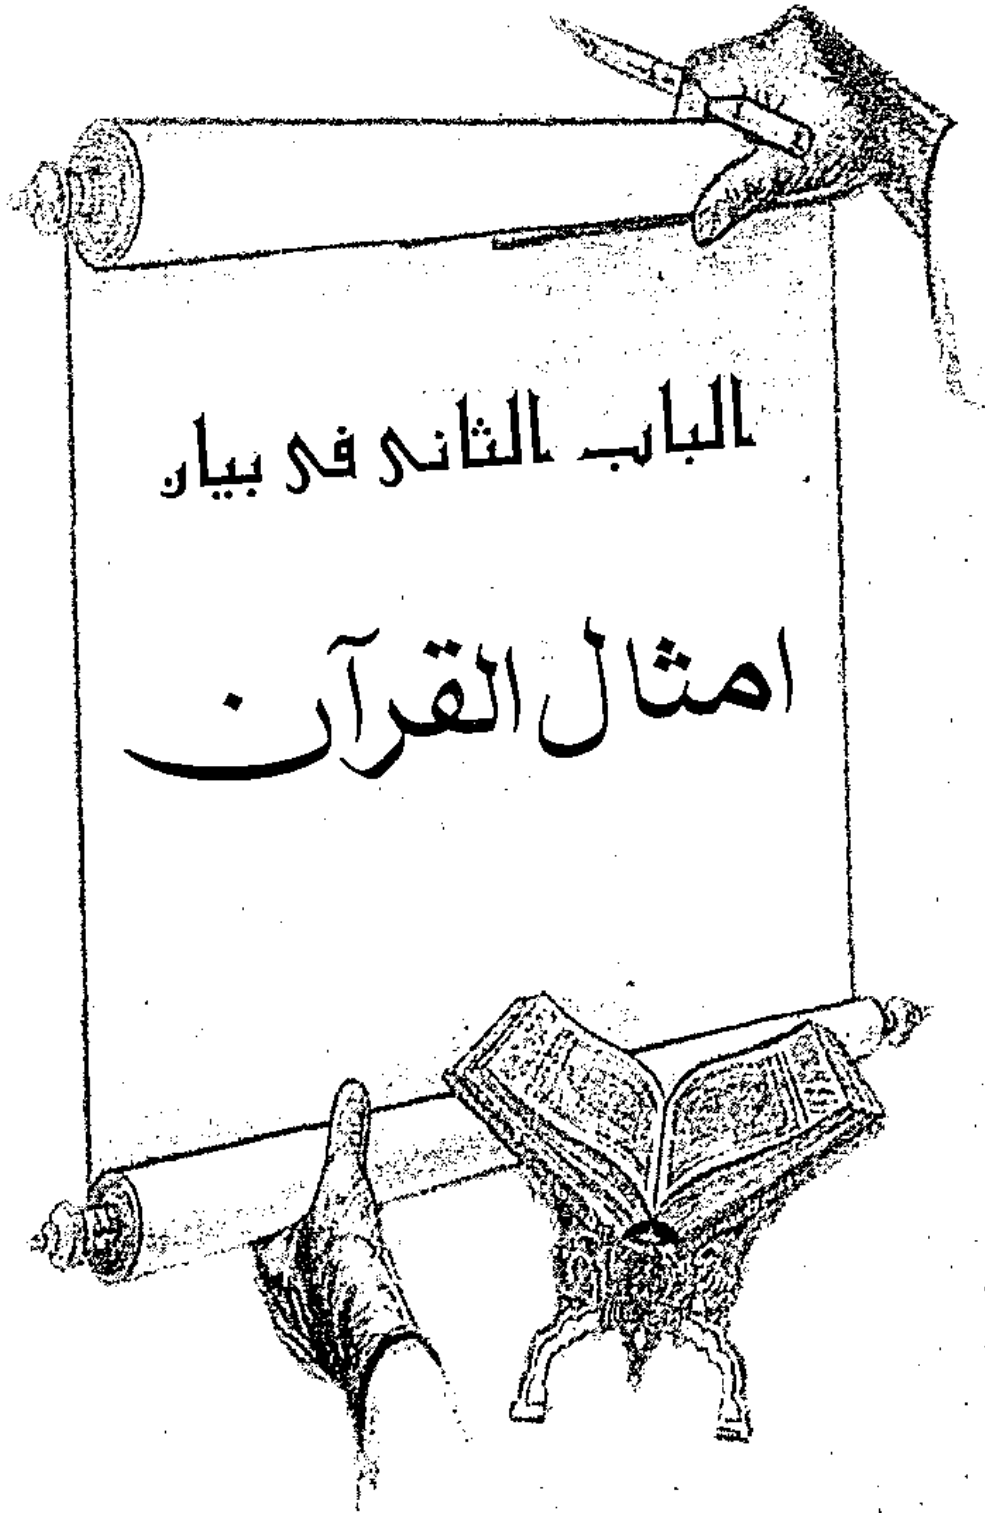 الباب الثانى فى بيان
امثال القرآن